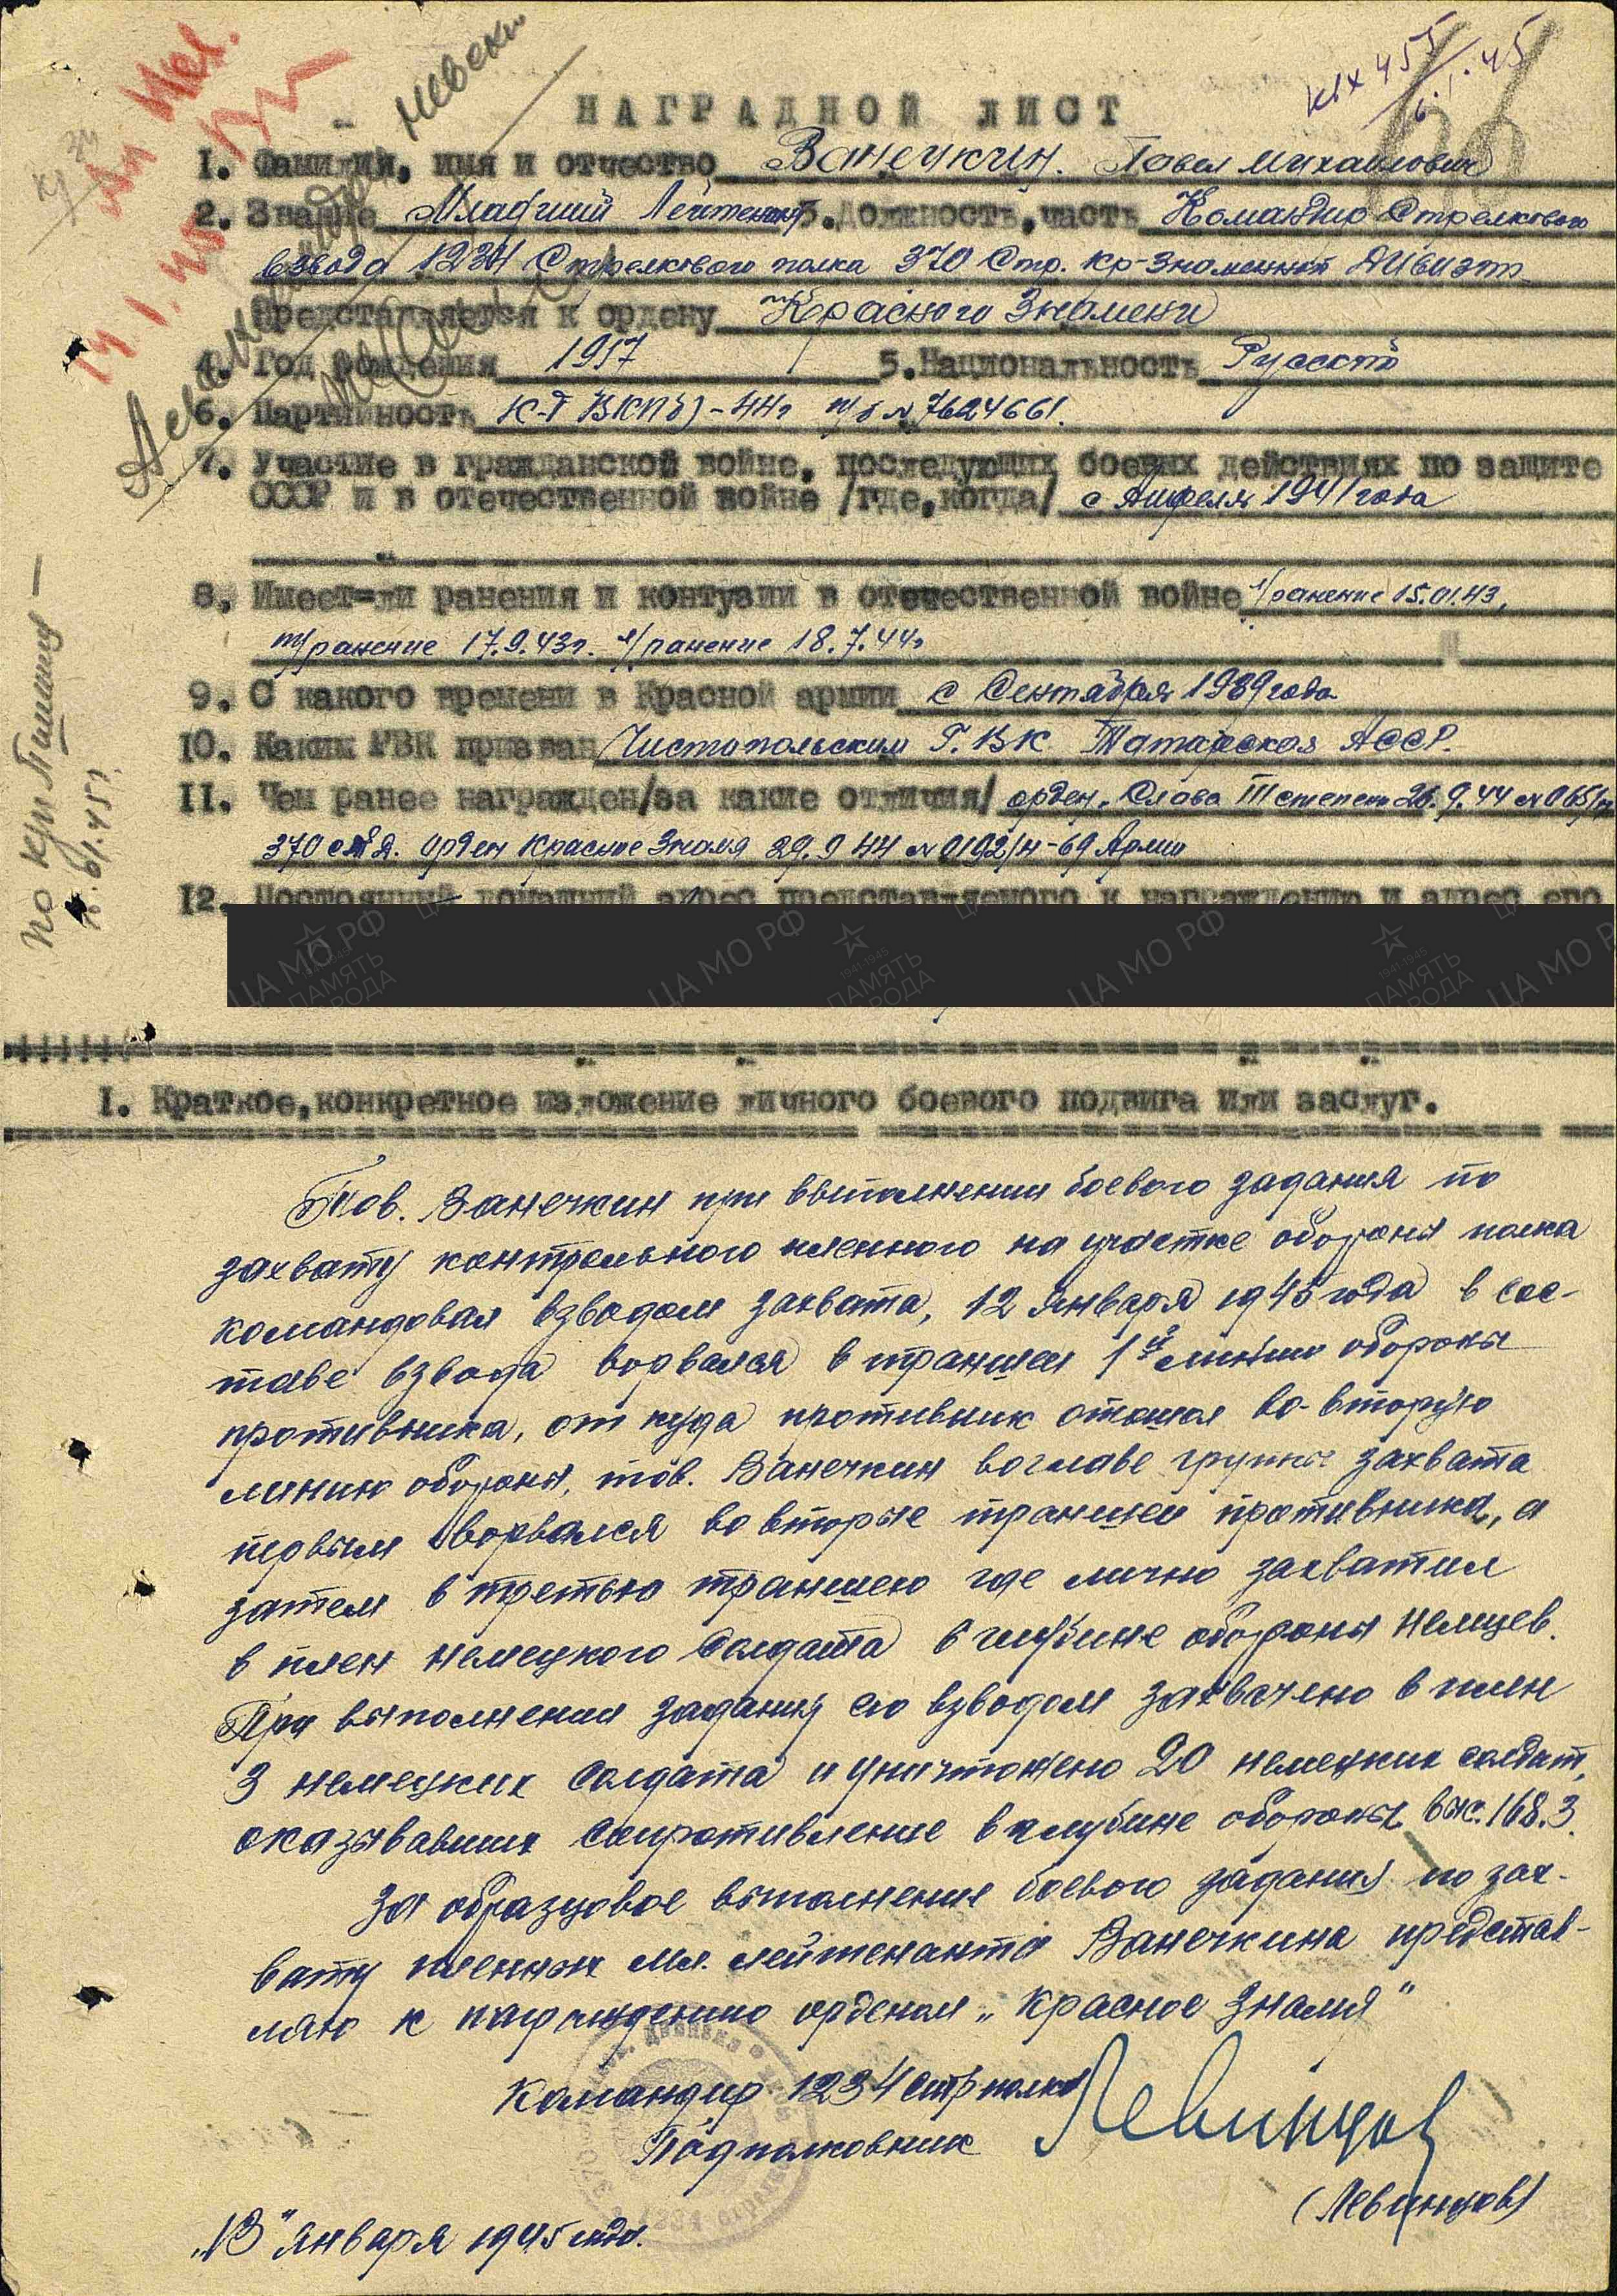 НАГРАДНОЙ ЛИСТ
1. Фамилия, имя и отчество Ванечкин. Павел Михайлович
2. Звание Младший Лейтенант 3. Должность, часть Командир Стрелкового
взвода 1234 Стрелкового полка 370 Стр. Кр-Знаменной дивизии
Представляется к ордену "Красного Знамени
4. Год рождения 1917 5. Национальность Русский
6. Партийность К-т ВКП(б) - 44г п/б № 7624661.
7. Участие в гражданской войне, последующих боевых действиях по защите
СССР и в отечественной войне /где, когда/ с Апреля 1941 года
8. Имеет-ли ранения и контузии в отечественной войне л/ранение 15.01.43,
т/ранение 17.9.43г. л/ранение 18.7.44г
9. С какого времени в Красной армии с Сентября 1939 года
10. Каким РВК призван Чистопольским Г.ВК Татарская АССР.
11. Чем ранее награжден/за какие отличия/ орден "Слава III степени 26.9.44 № 065/н
370 сд. орден Красное Знамя 29.9 44 № 0192/н - 69 Армии
12. Постоянный домашний адрес представляемого к награждению и адрес его
1. Краткое, конкретное изложение личного боевого подвига или заслуг.
Тов. Ванечкин при выполнении боевого задания по
захвату контрольного пленного на участке обороны полка
командовал взводом захвата, 12 Января 1945 года в сос-
таве взвода ворвался в траншеи 1й линии обороны
противника, от куда противник отошол во-вторую
линию обороны, тов. Ванечкин воглаве группы захвата
первым ворвался во вторые траншеи противника, а
затем в третью траншею где лично захватил
в плен немецкого солдата в глубине обороны Немцев.
При выполнении задания его взводом захвачено в плен
3 немецких солдата и уничтожено 20 немецких солдат,
оказывавших сопротивление в глубине обороны выс. 168.3.
За образцовое выполнение боевого задания по зах-
вату пленных мл. лейтенанта Ванечкина представ-
ляю к награждению орденом "Красное Знамя"
Командир 1234 стр полка
Подполковник
(Левинцов)
"13" Января 1945 года.
по кр Пашину —
6/1.45г.
ЦА МО РФ
ПАМЯТЬ НАРОДА